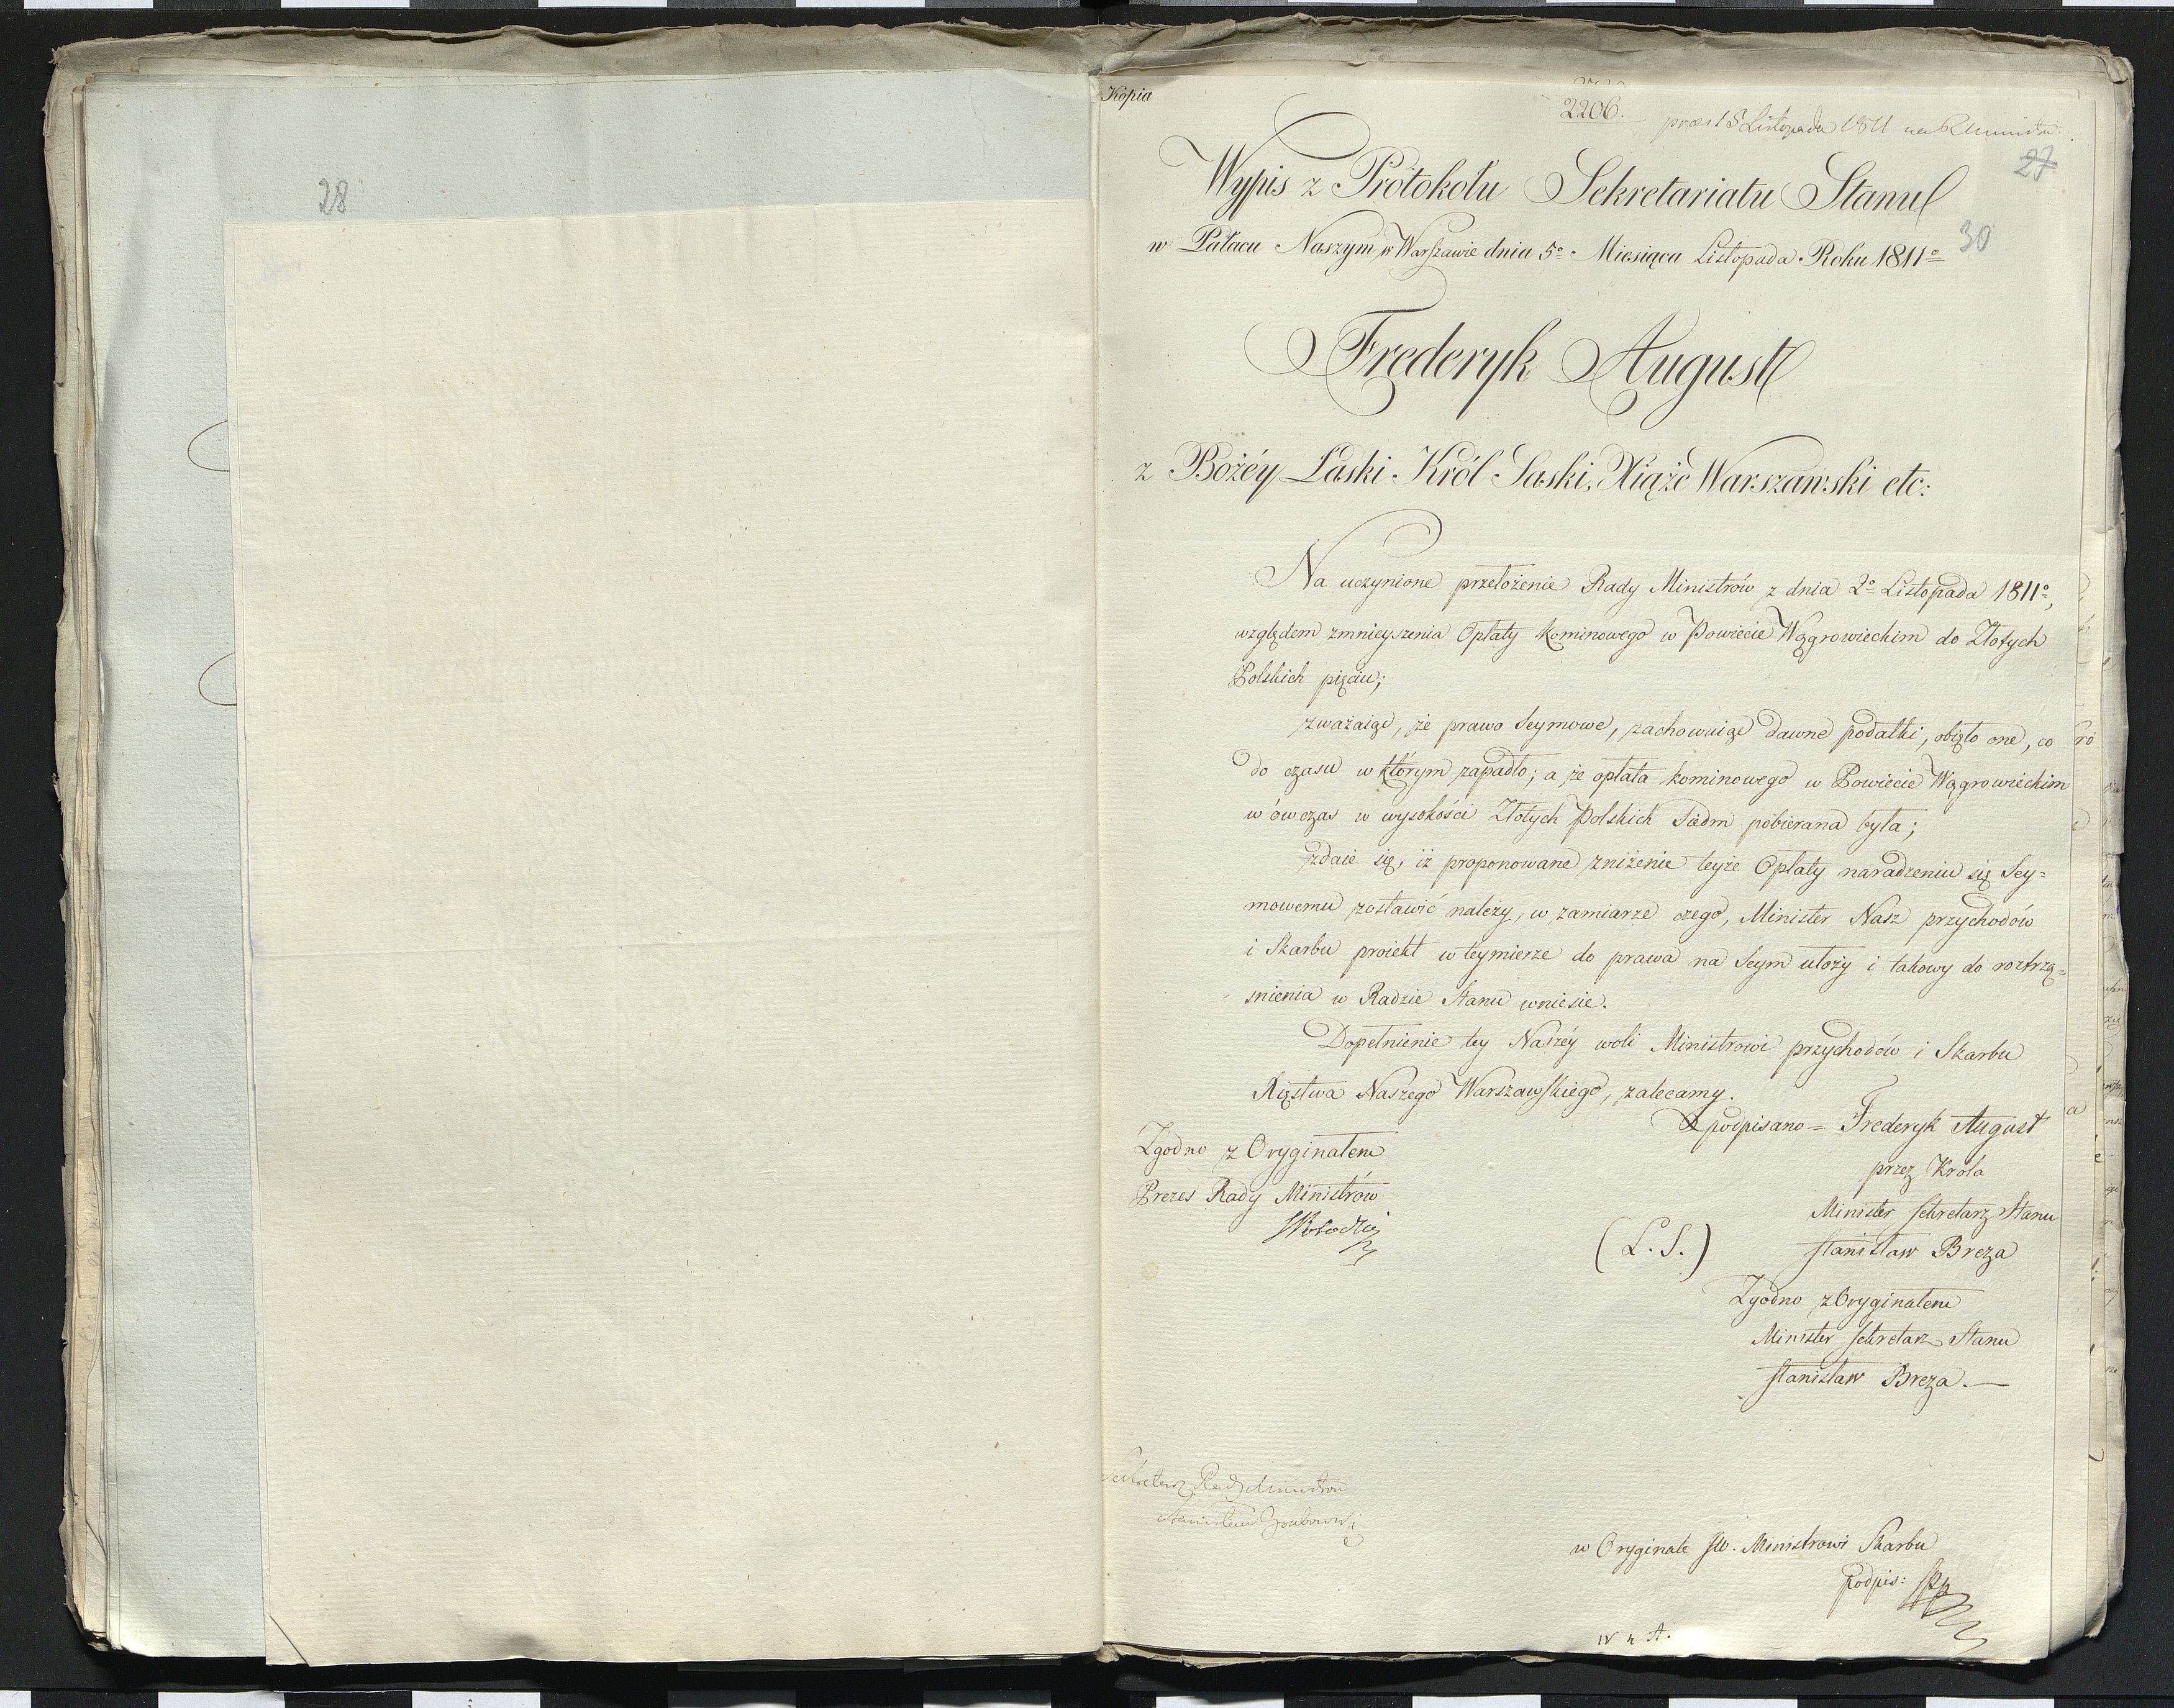 28
Kopia
2206.
praes 15 Listopada 1811
27
Wypis z Protokołu Sekretariatu Stanu
30
w Pałacu Naszym w Warszawie dnia 5º Miesiąca Listopada Roku 1811º
Frederyk August
z Bożéy Łaski Król Saski, Xiąże Warszawski etc:
Na uczynione przełożenie Rady Ministrów z dnia 2º Listopada 1811º,
względem zmnieyszenia Opłaty kominowego w Powiecie Wągrowieckim do Złotych
Polskich pięciu;
zważaiąc, że prawo Seymowe, zachowuiąc dawne podatki, obięło one, co
do czasu w którym zapadło; a że opłata kominowego w Powiecie Wągrowieckim
w ówczas w wysokości Złotych Polskich Siedm pobierana była;
zdaie się, iż proponowane zniżenie teyże Opłaty naradzeniu się Sey=
mowemu zostawić należy, w zamiarze czego, Minister Nasz przychodów
i Skarbu proiekt w teymierze do prawa na Seym ułoży i takowy do roztrzą=
śnienia w Radzie Stanu wniesie.
Dopełnienie tey Naszéy woli Ministrowi przychodów i Skarbu
Xięstwa Naszego Warszawskiego, zalecamy.
podpisano = Frederyk August
przez Króla
Minister Sekretarz Stanu
(L. S.) Stanisław Breza
Zgodno z Oryginałem
Minister Sekretarz Stanu
Stanisław Breza.—
Zgodno z Oryginałem
Prezes Rady Ministrów
Sekretarz Rady Ministrów
Stanisław Grabowski
w Oryginale JW. Ministrowi Skarbu
podpis: